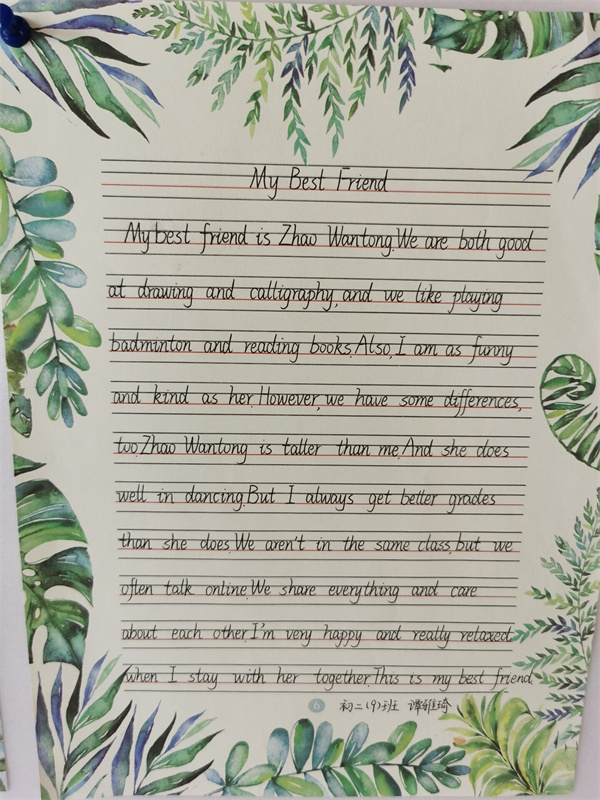 My Best Friend
My best friend is Zhao Wantong.We are both good
at drawing and calligraphy,and we like playing
badminton and reading books.Also,I am as funny
and kind as her.However,we have some differences,
too.Zhao Wantong is taller than me.And she does
well in dancing.But I always get better grades
than she does.We aren't in the same class,but we
often talk online.We share everything and care
about each other.I'm very happy and really relaxed
when I stay with her together.This is my best friend
6 初二(9)班 谭雅琦